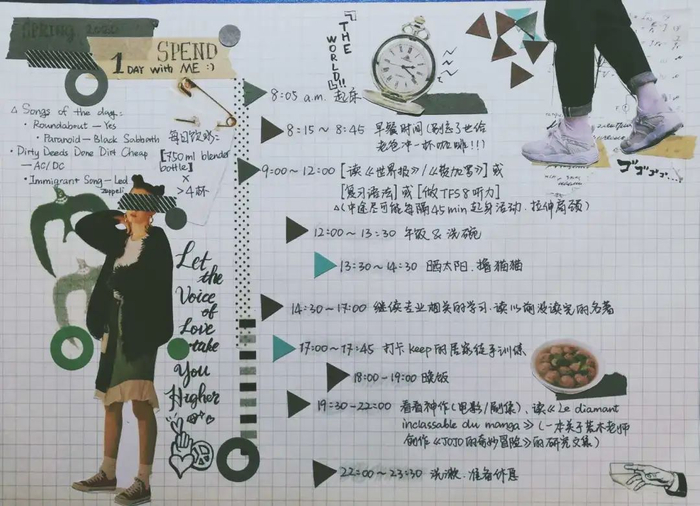 SPRING 2020
SPEND
1 DAY with ME :)
『THE WORLD』!!
△ Songs of the day:
· Roundabout — Yes
· Paranoid — Black Sabbath
· Dirty Deeds Done Dirt Cheap — AC/DC
· Immigrant Song — Led Zeppelin
每日饮水:
[750ml blender bottle]
×
>4杯
8:05 a.m. 起床
8:15~8:45 早餐时间(别忘了也给
老爸冲一杯咖啡!!)
9:00~12:00 [读《世界报》/《费加罗》]或
[复习语法]或[做TFS 8听力]
△(中途尽可能每隔45min起身活动、拉伸肩颈)
12:00~13:30 午饭&洗碗
13:30~14:30 晒太阳、撸猫猫
14:30~17:00 继续专业相关的学习、读以前没读完的名著
17:00~17:45 打卡Keep的居家徒手训练
18:00-19:00 晚饭
19:30-22:00 看看神作(电影/剧集)、读《Le diamant
inclassable du manga》(一本关于荒木老师
创作《JOJO的奇妙冒险》的研究文集)
22:00~23:30 洗漱、准备休息
Let
the
Voice
of
Love
take
You
Higher
ゴゴゴゴ...